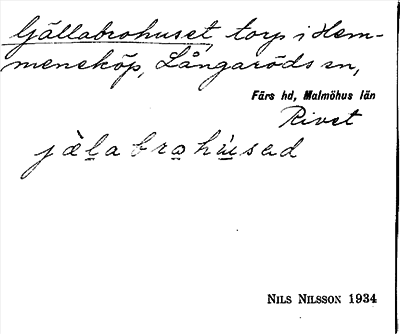 Gällabrohuset, torp i Hem-
menesköp, Långaröds sn,
Färs hd, Malmöhus län
Rivet
jàlabrohúsad
NILS NILSSON 1934